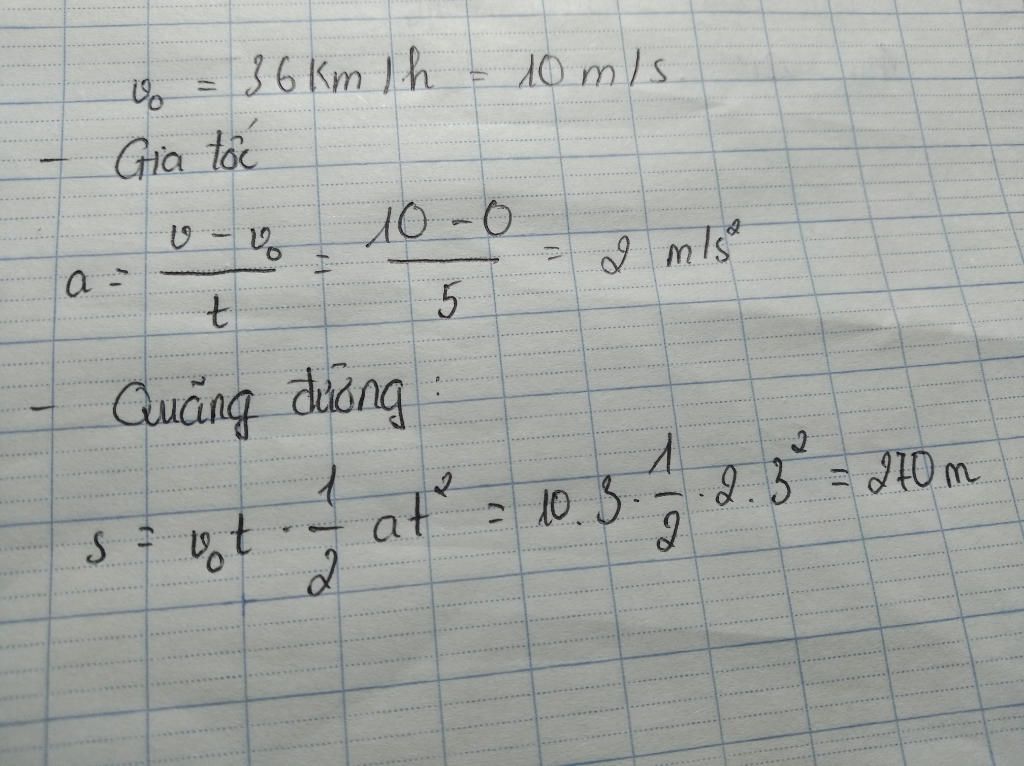 v₀ = 36 Km/h = 10 m/s
- Gia tốc
a = (v - v₀)/t = (10 - 0)/5 = 2 m/s²
- Quãng đường :
s = v₀t · 1/2 at² = 10.3 · 1/2 . 2 . 3² = 270 m